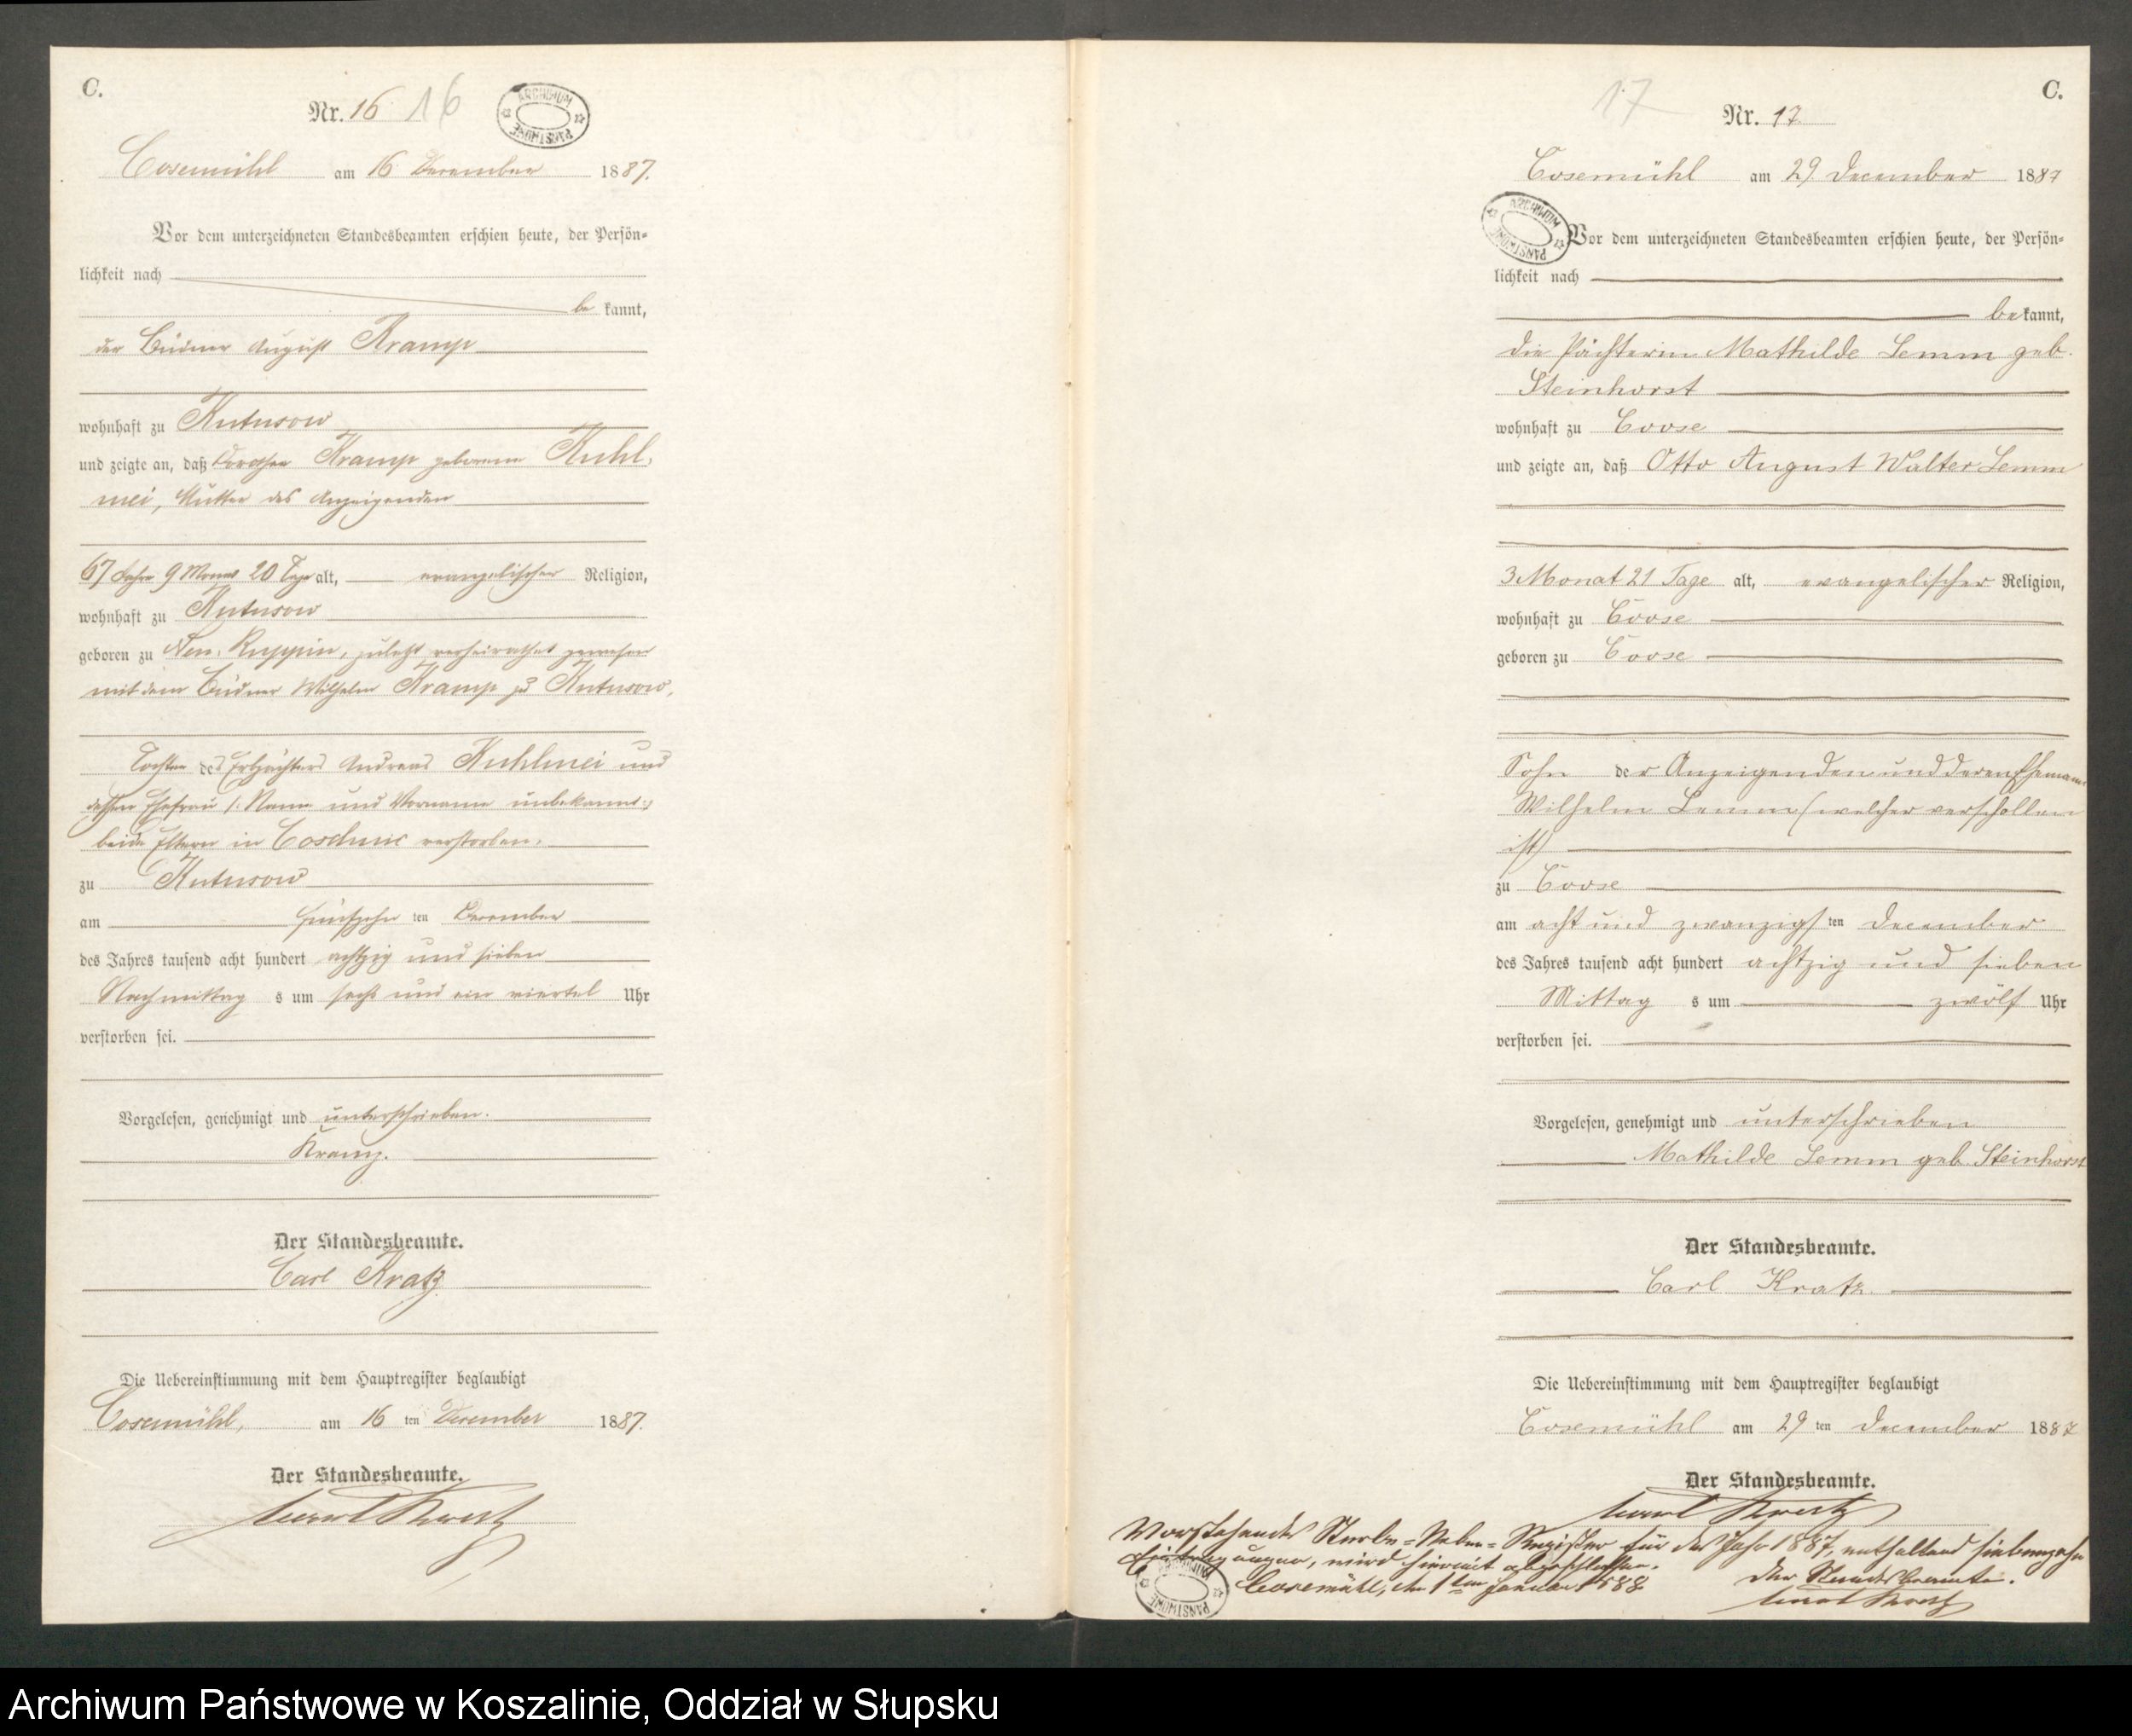 C.
Nr. 16 16
ARCHIWUM PAŃSTWOWE
Cosemühl am 16 December 1887.
Vor dem unterzeichneten Standesbeamten erschien heute, der Persön-
lichkeit nach
be kannt,
der Büdner August Kramp
wohnhaft zu Kutusow
und zeigte an, daß Dorothea Kramp geborene Kuhl-
mei, Mutter des Anzeigenden
67 Jahre 9 Monat 20 Tage alt, evangelischer Religion,
wohnhaft zu Kutusow
geboren zu Neu-Ruppin, zuletzt verheirathet gewesen
mit dem Büdner Wilhelm Kramp zu Kutusow,
Tochter des Erbpächters Andreas Kuhlmei und
dessen Ehefrau /: Name und Vorname unbekannt :/
beide Eltern in verstorben.
zu Kutusow
am fünfzehn ten December
des Jahres tausend acht hundert achtzig und sieben
Nachmittag s um sechs und ein viertel Uhr
verstorben sei.
Vorgelesen, genehmigt und unterschrieben.
Kramp.
Der Standesbeamte.
Carl Kratz
Die Uebereinstimmung mit dem Hauptregister beglaubigt
Cosemühl, am 16 ten December 1887.
Der Standesbeamte.
Carl Kratz
17 Nr. 17
C.
Cosemühl am 29 December 1887
ARCHIWUM PAŃSTWOWE
Vor dem unterzeichneten Standesbeamten erschien heute, der Persön-
lichkeit nach
be kannt,
die Pächterin Mathilde Lemm geb.
Steinhorst
wohnhaft zu Coose
und zeigte an, daß Otto August Walter Lemm
3 Monat 21 Tage alt, evangelischer Religion,
wohnhaft zu Coose
geboren zu Coose
Sohn der Anzeigenden und deren Ehemann
Wilhelm Lemm (welcher verschollen
ist)
zu Coose
am acht und zwanzigs ten December
des Jahres tausend acht hundert achtzig und sieben
Mittag s um zwölf Uhr
verstorben sei.
Vorgelesen, genehmigt und unterschrieben
Mathilde Lemm geb. Steinhorst
Der Standesbeamte.
Carl Kratz
Die Uebereinstimmung mit dem Hauptregister beglaubigt
Cosemühl am 29 ten December 1887
Der Standesbeamte.
Carl Kratz
Vorstehendes Sterbe-Neben-Register für das Jahr 1887, enthaltend siebenzehn
Eintragungen, wird hiermit abgeschlossen.
Cosemühl, den 1ten Januar 1888
Der Standesbeamte.
Carl Kratz
ARCHIWUM PAŃSTWOWE
Archiwum Państwowe w Koszalinie, Oddział w Słupsku